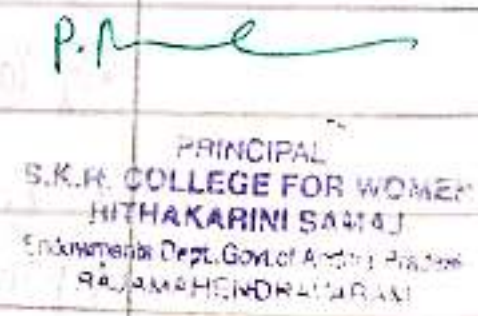 P.
PRINCIPAL
S.K.R. COLLEGE FOR WOMEN
HITHAKARINI SAMAJ
Endowments Dept. Govt. of Andhra Pradesh
RAJAMAHENDRAVARAM